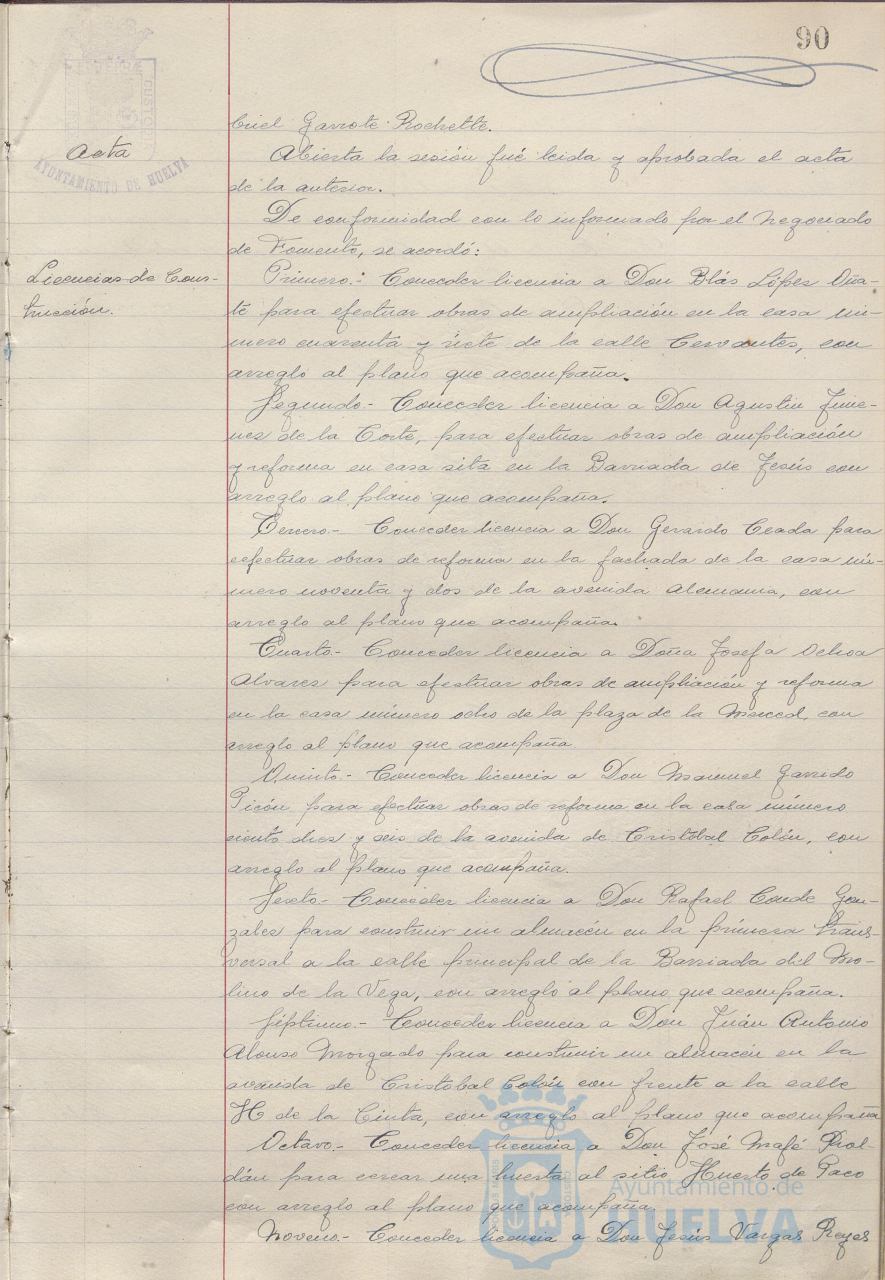 90
briel Garrote Rochette.
Acta
AYUNTAMIENTO DE HUELVA
Abierta la sesión fué leida y aprobada el acta
de la anterior.
De conformidad con lo informado por el Negociado
de Fomento, se acordó:
Licencias de Cons-
trucción.
Primero.- Conceder licencia a Don Blás López Oña-
te para efectuar obras de ampliación en la casa nú-
mero cuarenta y siete de la calle Cervantes, con
arreglo al plano que acompaña.
Segundo.- Conceder licencia a Don Agustin Jime-
nez de la Corte, para efectuar obras de ampliación
y reforma en casa sita en la Barriada de Jesús con
arreglo al plano que acompaña.
Tercero.- Conceder licencia a Don Gerardo Ceada para
eefectuar obras de reforma en la fachada de la casa nú-
mero noventa y dos de la avenida Alemania, con
arreglo al plano que acompaña.
Cuarto.- Conceder licencia a Doña Josefa Ochoa
Alvarez para efectuar obras de ampliación y reforma
en la casa número ocho de la plaza de la Merced, con
arreglo al plano que acompaña
Quinto.- Conceder licencia a Don Manuel Garrido
Picón para efectuar obras de reforma en la casa número
ciento diez y seis de la avenida de Cristóbal Colón, con
arreglo al plano que acompaña.
Sexto.- Conceder licencia a Don Rafael Conde Gon-
zalez para construir un almacén en la primera trans-
versal a la calle principal de la Barriada del Mo-
lino de la Vega, con arreglo al plano que acompaña.
Séptimo.- Conceder licencia a Don Juán Antonio
Alonso Morgado para construir un almacén en la
avenida de Cristóbal Colón con frente a la calle
H de la Cinta, con arreglo al plano que acompaña
Octavo.- Conceder licencia a Don José Mafé Rol-
dán para cercar una huerta al sitio Huerto de Paco
con arreglo al plano que acompaña.
Noveno.- Conceder licencia a Don Jesús Vargas Reyes
Ayuntamiento de
HUELVA